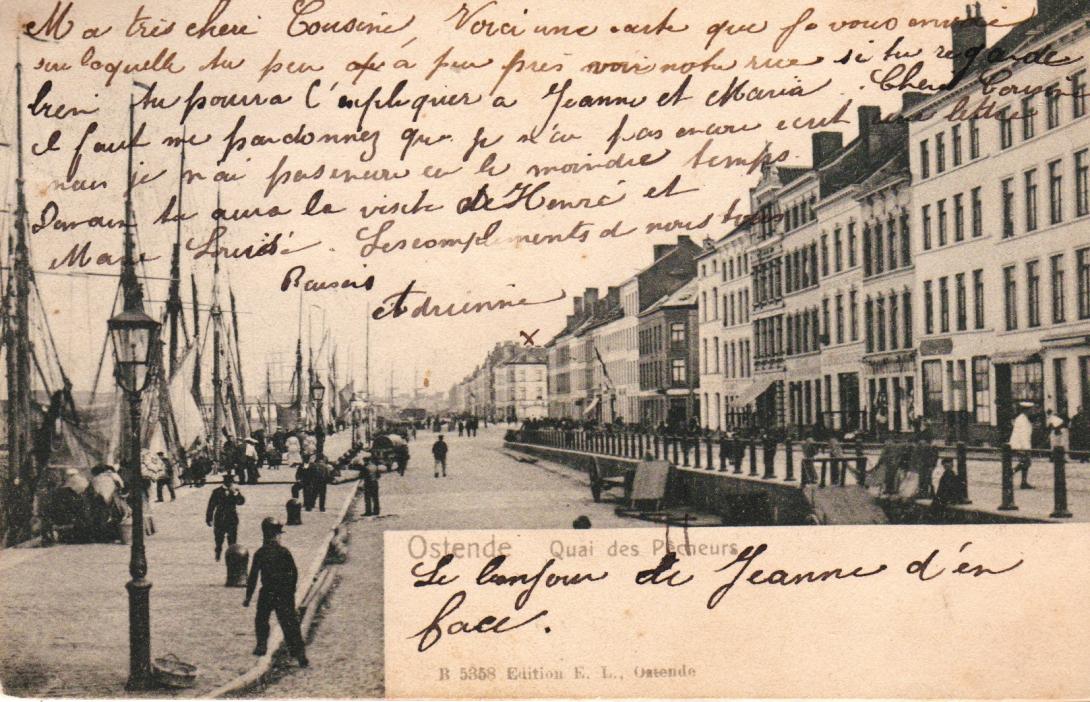 Ma très cheri Cousine, Voici une carte que je vous envoie
sur laquelle tu peu a peu près voir notre rue si tu regarde
bien tu pourra l'expliquer a Jeanne et Maria. Cher Cousine
il faut me pardonnez que je n'ai pas encore ecrit une lettre
mais je n'ai pas encore eu le moindre temps.
Demain tu aura la visite de Henré et
Marie Louise. Les compliments de nous tous
Baisers
Adrienne
x
Ostende Quai des Pêcheurs
Le bonjour de Jeanne d'én
face.
B 5358 Edition E. L., Ostende